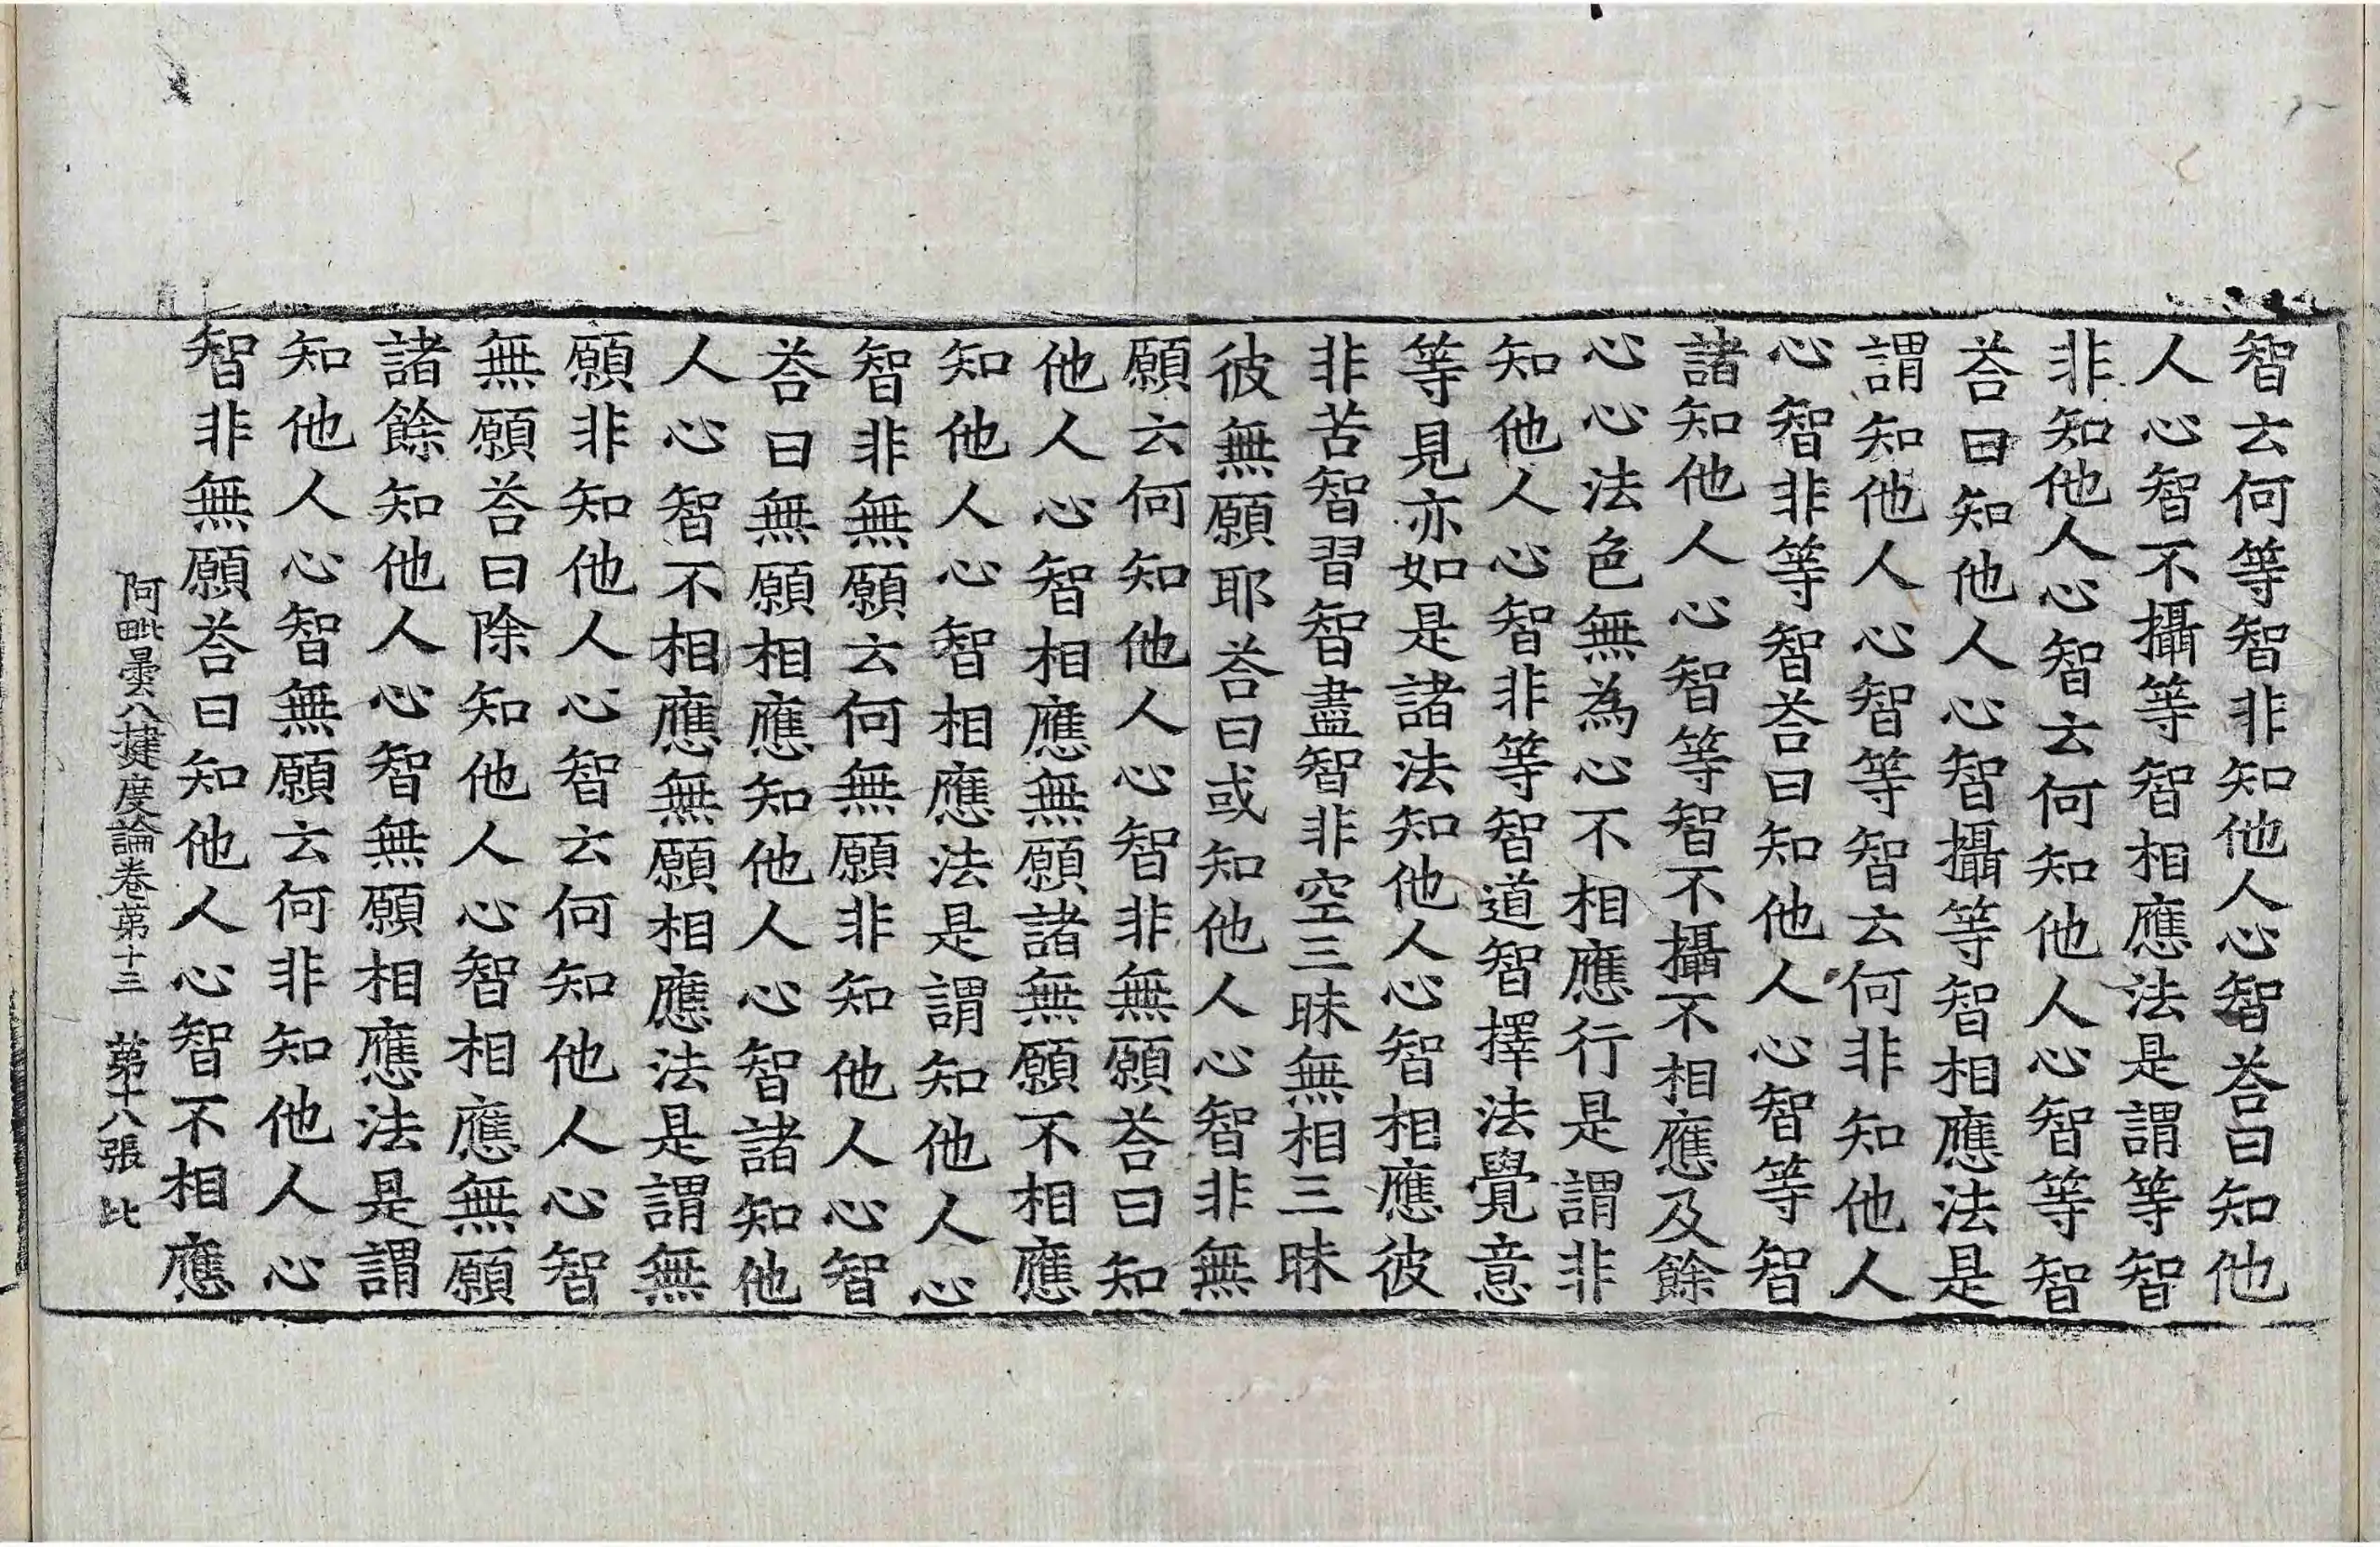 智云何等智非知他人心智荅曰知他
人心智不攝等智相應法是謂等智
非知他人心智云何知他人心智等智
荅曰知他人心智攝等智相應法是
謂知他人心智等智云何非知他人
心智非等智荅曰知他人心智等智
諸知他人心智等智不攝不相應及餘
心心法色無為心不相應行是謂非
知他人心智非等智道智擇法覺意
等見亦如是諸法知他人心智相應彼
非苦智習智盡智非空三昧無相三昧
彼無願耶荅曰或知他人心智非無
願云何知他人心智非無願荅曰知
他人心智相應無願諸無願不相應
知他人心智相應法是謂知他人心
智非無願云何無願非知他人心智
荅曰無願相應知他人心智諸知他
人心智不相應無願相應法是謂無
願非知他人心智云何知他人心智
無願荅曰除知他人心智相應無願
諸餘知他人心智無願相應法是謂
知他人心智無願云何非知他人心
智非無願荅曰知他人心智不相應
阿毗曇八揵度論卷第十三 第十八張 比